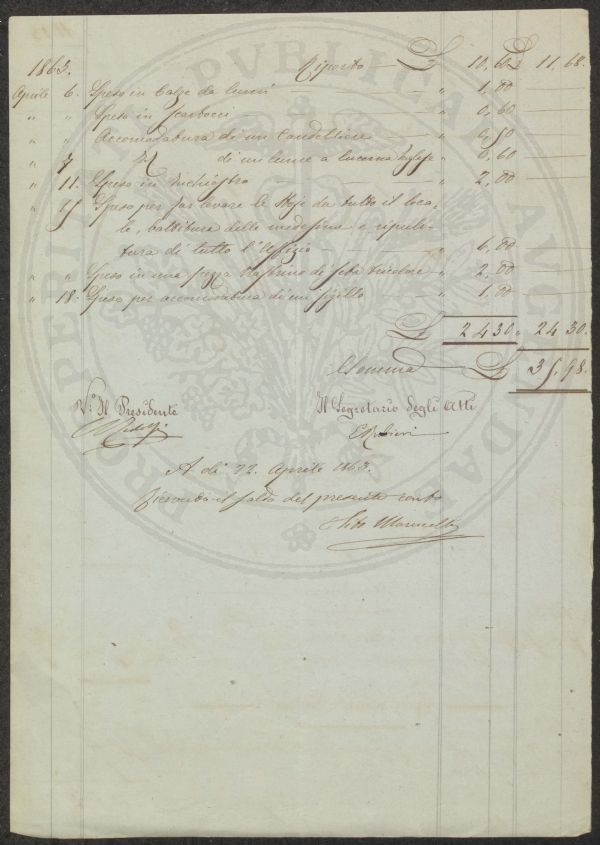 1863. Riporto £ 10,60 £ 11,68.
Aprile 6. Speso in Calze da lumi " 1,00
" " Speso in Scarbocci " 0,60
" " Accomodatura di un Candelliere " 0,50
" 7 Id di un lume a lucerna Inglese " 0,60
" 11. Speso in Inchiostro " 2,00
" 15 Speso per far levare le Stoje da tutto il loca-
le, battitura delle medesime e ripuli-
tura di tutto l'Uffizio " 6,00
" " Speso in una pezza Nastrino di seta tricolore " 2,00
" 18. Speso per accomodatura di un sigillo " 1,00
£ 24 30. 24 30.
Somma £ 35,98.
V.° Il Presidente Il Segretario degli Atti
A dì 22 Aprile 1863.
Ricevuto il saldo del presente conto
Marinelli
PROSPERITATI PUBLICAE AUGENDAE